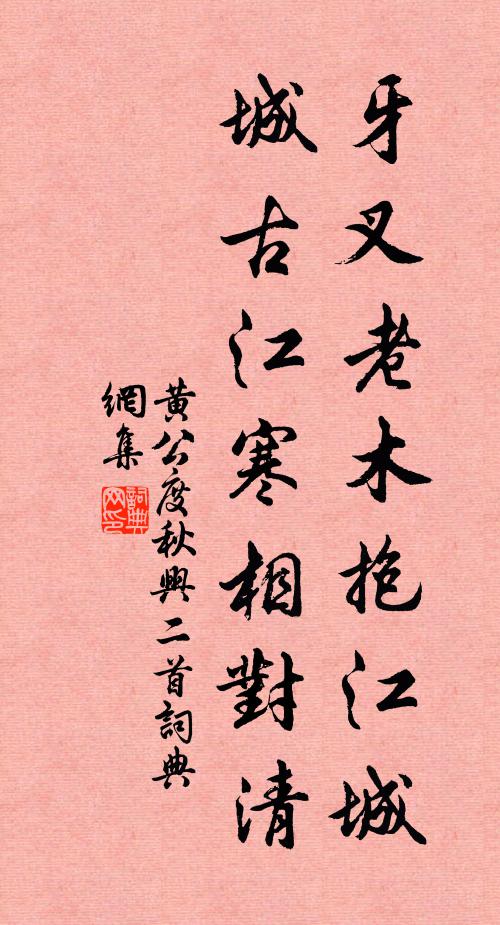 牙叉老木抱江城
城古江寒相對清
黄公度秋興二首詞典
網集
詞典
网印